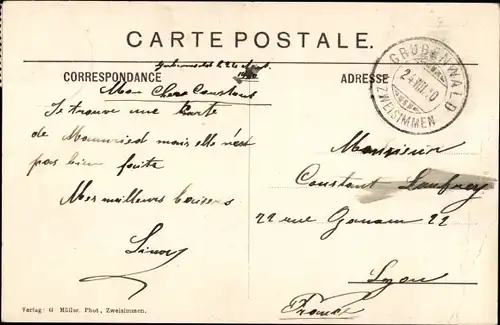 CARTE POSTALE.
CORRESPONDANCE
ADRESSE
GRUBENWALD
24.VIII.10
ZWEISIMMEN
Mon Cher Constant
Je trouve une Carte
de mais elle n'est
pas bien faite
Mes meilleurs baisers
Monsieur
Constant
22 rue 22
Lyon
France
Verlag: G Müller. Phot., Zweisimmen.